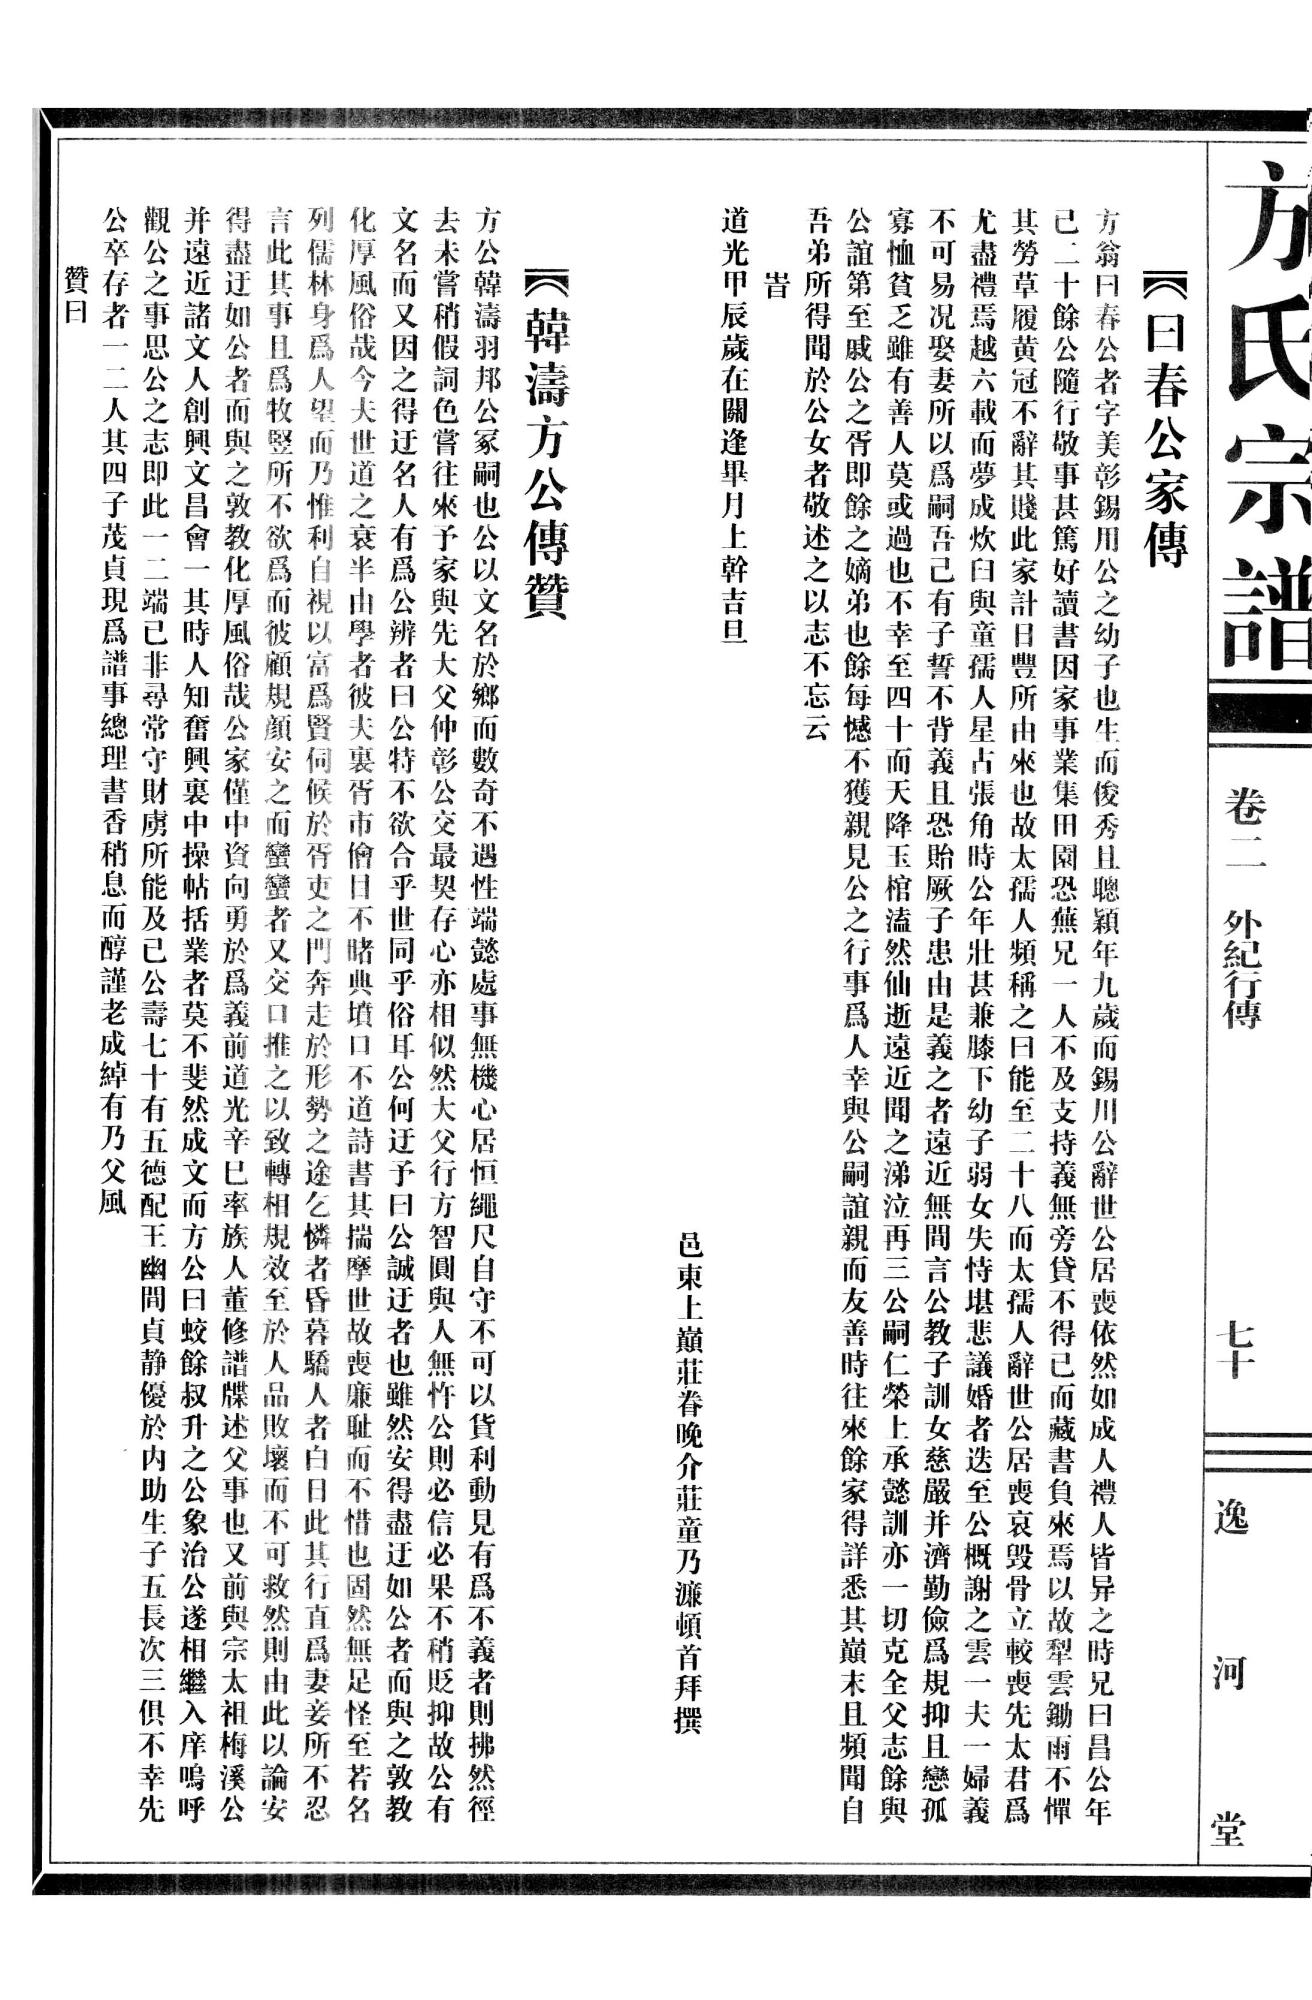 方氏宗譜
卷二 外紀行傳
七十
逸河堂
曰春公家傳
方翁曰春公者字美彰錫用公之幼子也生而俊秀且聰穎年九歲而錫川公辭世公居喪依然如成人禮人皆异之時兄曰昌公年
己二十餘公隨行敬事甚篤好讀書因家事業集田園恐蕪兄一人不及支持義無旁貸不得已而藏書負來焉以故犁雲鋤雨不憚
其勞草履黄冠不辭其賤此家計日豐所由來也故太孺人頻稱之曰能至二十八而太孺人辭世公居喪哀毁骨立較喪先太君爲
尤盡禮焉越六載而夢成炊臼與童孺人星占張角時公年壯甚兼膝下幼子弱女失恃堪悲議婚者迭至公概謝之雲一夫一婦義
不可易况娶妻所以爲嗣吾己有子誓不背義且恐貽厥子患由是義之者遠近無間言公教子訓女慈嚴并濟勤儉爲規抑且戀孤
寡恤貧乏雖有善人莫或過也不幸至四十而天降玉棺溘然仙逝遠近聞之涕泣再三公嗣仁榮上承懿訓亦一切克全父志餘與
公誼第至戚公之胥即餘之嫡弟也餘每憾不獲親見公之行事爲人幸與公嗣誼親而友善時往來餘家得詳悉其巔末且頻聞自
吾弟所得聞於公女者敬述之以志不忘云
旹
道光甲辰歲在關逢畢月上幹吉旦
邑東上巔莊眷晚介莊童乃濂頓首拜撰
韓濤方公傳贊
方公韓濤羽邦公冢嗣也公以文名於鄉而數奇不遇性端懿處事無機心居恒繩尺自守不可以貨利動見有爲不義者則拂然徑
去未嘗稍假詞色嘗往來予家與先大父仲彰公交最契存心亦相似然大父行方智圓與人無忤公則必信必果不稍貶抑故公有
文名而又因之得迂名人有爲公辨者曰公特不欲合乎世同乎俗耳公何迂予曰公誠迂者也雖然安得盡迂如公者而與之敦教
化厚風俗哉今夫世道之衰半由學者彼夫裏胥市儈目不睹典墳口不道詩書其揣摩世故喪廉耻而不惜也固然無足怪至若名
列儒林身爲人望而乃惟利自視以富爲賢伺候於胥吏之門奔走於形勢之途乞憐者昏暮驕人者白日此其行直爲妻妾所不忍
言此其事且爲牧豎所不欲爲而彼顧規顔安之而蠻蠻者又交口推之以致轉相規效至於人品敗壞而不可救然則由此以論安
得盡迂如公者而與之敦教化厚風俗哉公家僅中資向勇於爲義前道光辛巳率族人董修譜牒述父事也又前與宗太祖梅溪公
并遠近諸文人創興文昌會一其時人知奮興裏中操帖括業者莫不斐然成文而方公曰蛟餘叔升之公象治公遂相繼入庠嗚呼
觀公之事思公之志即此一二端己非尋常守財虜所能及己公壽七十有五德配王幽間貞静優於内助生子五長次三俱不幸先
公卒存者一二人其四子茂貞現爲譜事總理書香稍息而醇謹老成綽有乃父風
贊曰